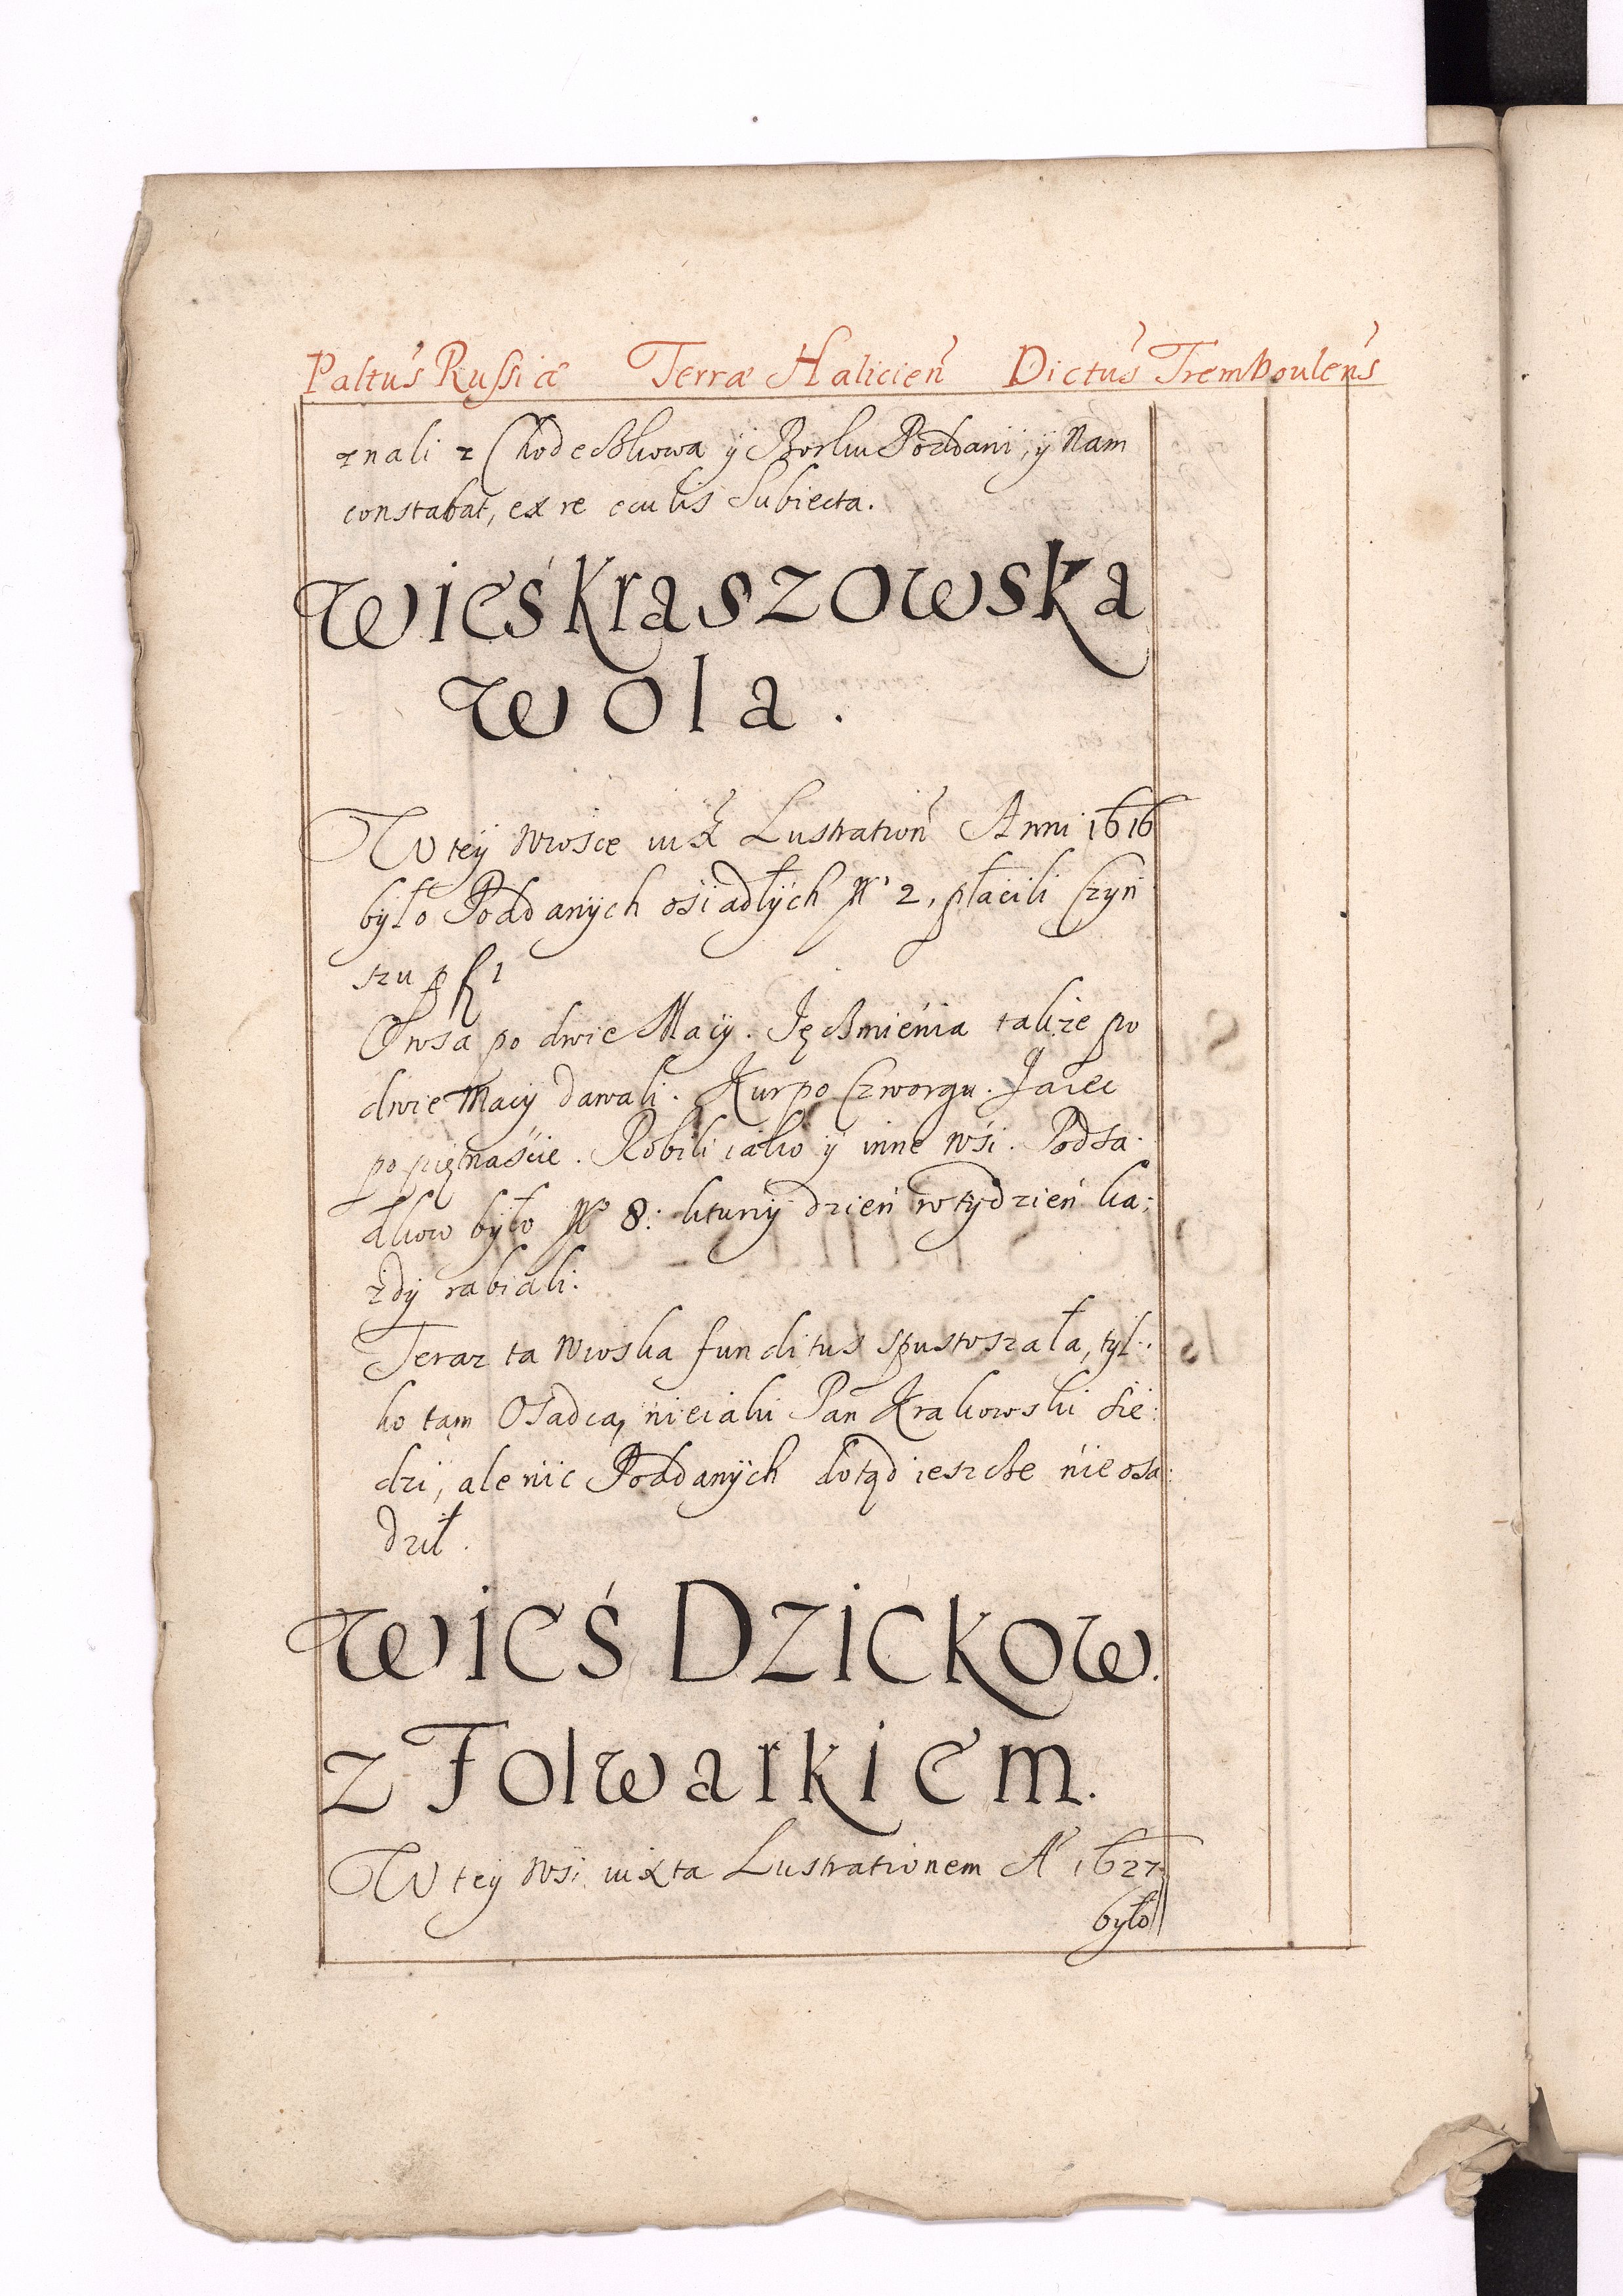 Paltus Russiæ Terræ Halicien Dictus Tremboulens
znali z Chodeßkowa ÿ Borku Poddani, ÿ Nam
constabat, ex re oculis Subiecta.
Wieś Kraszowska
Wola.
W teÿ Wiosce iuxt Lustration Anni 1616
było Poddanÿch ośiadłÿch No 2, płacili Czÿn
szu p f 1
Owsa po dwie Macÿ. Jęßmienia także po
dwie Macÿ dawali. Kur po Czworgu. Jaiec
po piętnaście. Robili iako ÿ inne Wśi. Podsa:
dkow było No 8: kturÿ dzień w tÿdzień ka:
żdÿ rabiali:
Teraz ta Wioska funditus spustoszała, tÿl:
ko tam Osadca, nieiaki Pan Krakowski sie:
dzi, ale nic Poddanÿch dotąd ieszcße nie osa:
dził.
Wieś Dzickow.
z Folwarkiem.
W teÿ Wsi iuxta Lustrationem Ao 1627
było